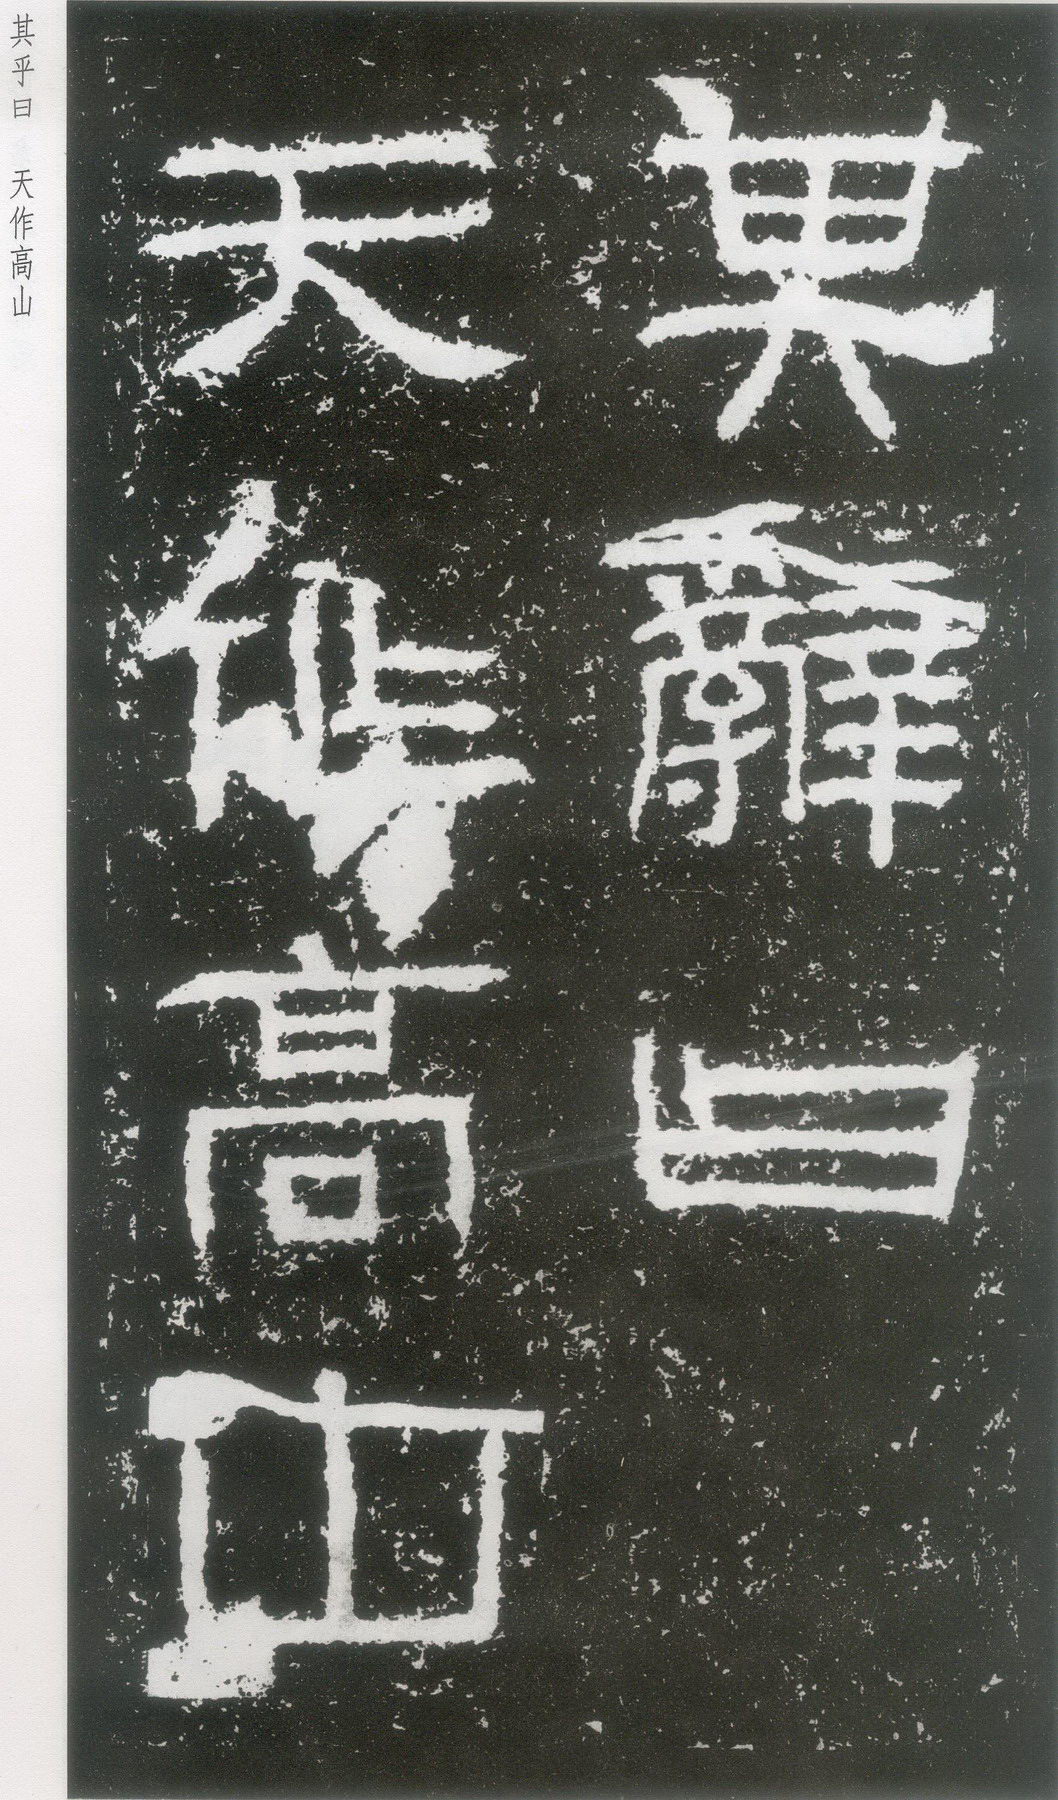 其辭曰
天作高山
其乎曰 天作高山